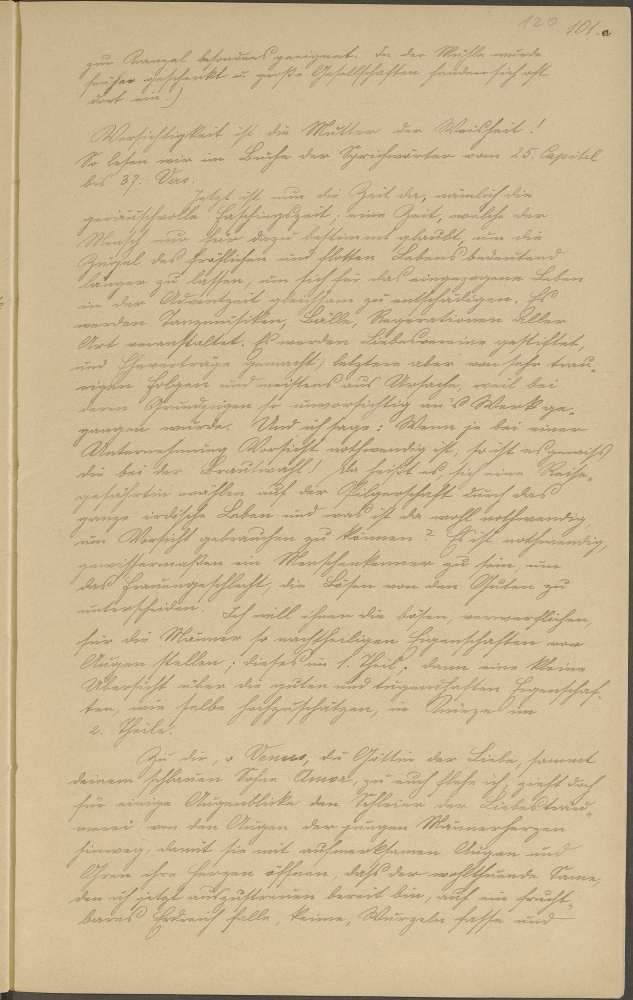 120 101.
zur Kanzel besonders geeignet. In der Mühle wurde
früher geschenkt u. große Gesellschaften fanden sich oft
dort ein.)
Vorsichtigkeit ist die Mutter der Weisheit!
So lesen wir im Buche der Sprichwörter vom 25. Capitel
bis 37. Vers.
Jetzt ist nun die Zeit da, nämlich die
geräuschvolle Faschingszeit, eine Zeit, welche der
Mensch nur für dazu bestimmt glaubt, um die
Zügel des fröhlichen und flotten Lebens bedeutend
länger zu lassen, um sich für das eingezogene Leben
in der Adventzeit gleichsam zu entschädigen. Es
werden Tanzmusiken, Bälle, Regerationen aller
Art veranstaltet. Es werden Liebesvereine gestiftet,
und Eheverträge gemacht; letztere aber von sehr trau-
rigen Folgen und meistens aus Ursache, weil bei
deren Grundzügen so unvorsichtig an's Werk ge-
gangen wurde. Und ich sage: Wenn je bei einer
Unternehmung Vorsicht nothwendig ist, so ist es gewiß
die bei der Brautwahl! Da heißt es, sich eine Reise-
gefährtin wählen auf der Pilgerschaft durch das
ganze irdische Leben und was ist da wohl nothwendig,
um Vorsicht gebrauchen zu können? Es ist nothwendig,
gewissermaßen ein Menschenkenner zu sein, um
das Frauengeschlecht, die Bösen von den Guten zu
unterscheiden. Ich will ihnen die bösen, verwerflichen,
für die Männer so nachtheiligen Eigenschaften vor
Augen stellen; dieses im 1. Theil; dann eine kleine
Übersicht über die guten und tugendhaften Eigenschaf-
ten, wie selbe hochzuschätzen, in Kürze im
2. Theile.
Zu dir, o Venus, du Göttin der Liebe, sammt
deinem schlauen Sohn Amor, zu euch flehe ich, zieht doch
für einige Augenblicke den Schleier der Liebesträu-
merei von den Augen der jungen Männerherzen
hinweg, damit sie mit aufmerksamen Augen und
Ohren ihre Herzen öffnen, daß der wohlthuende Same,
den ich jetzt auszustreuen bereit bin, auf ein frucht-
bares Erdreich falle, keime, Wurzeln fasse und